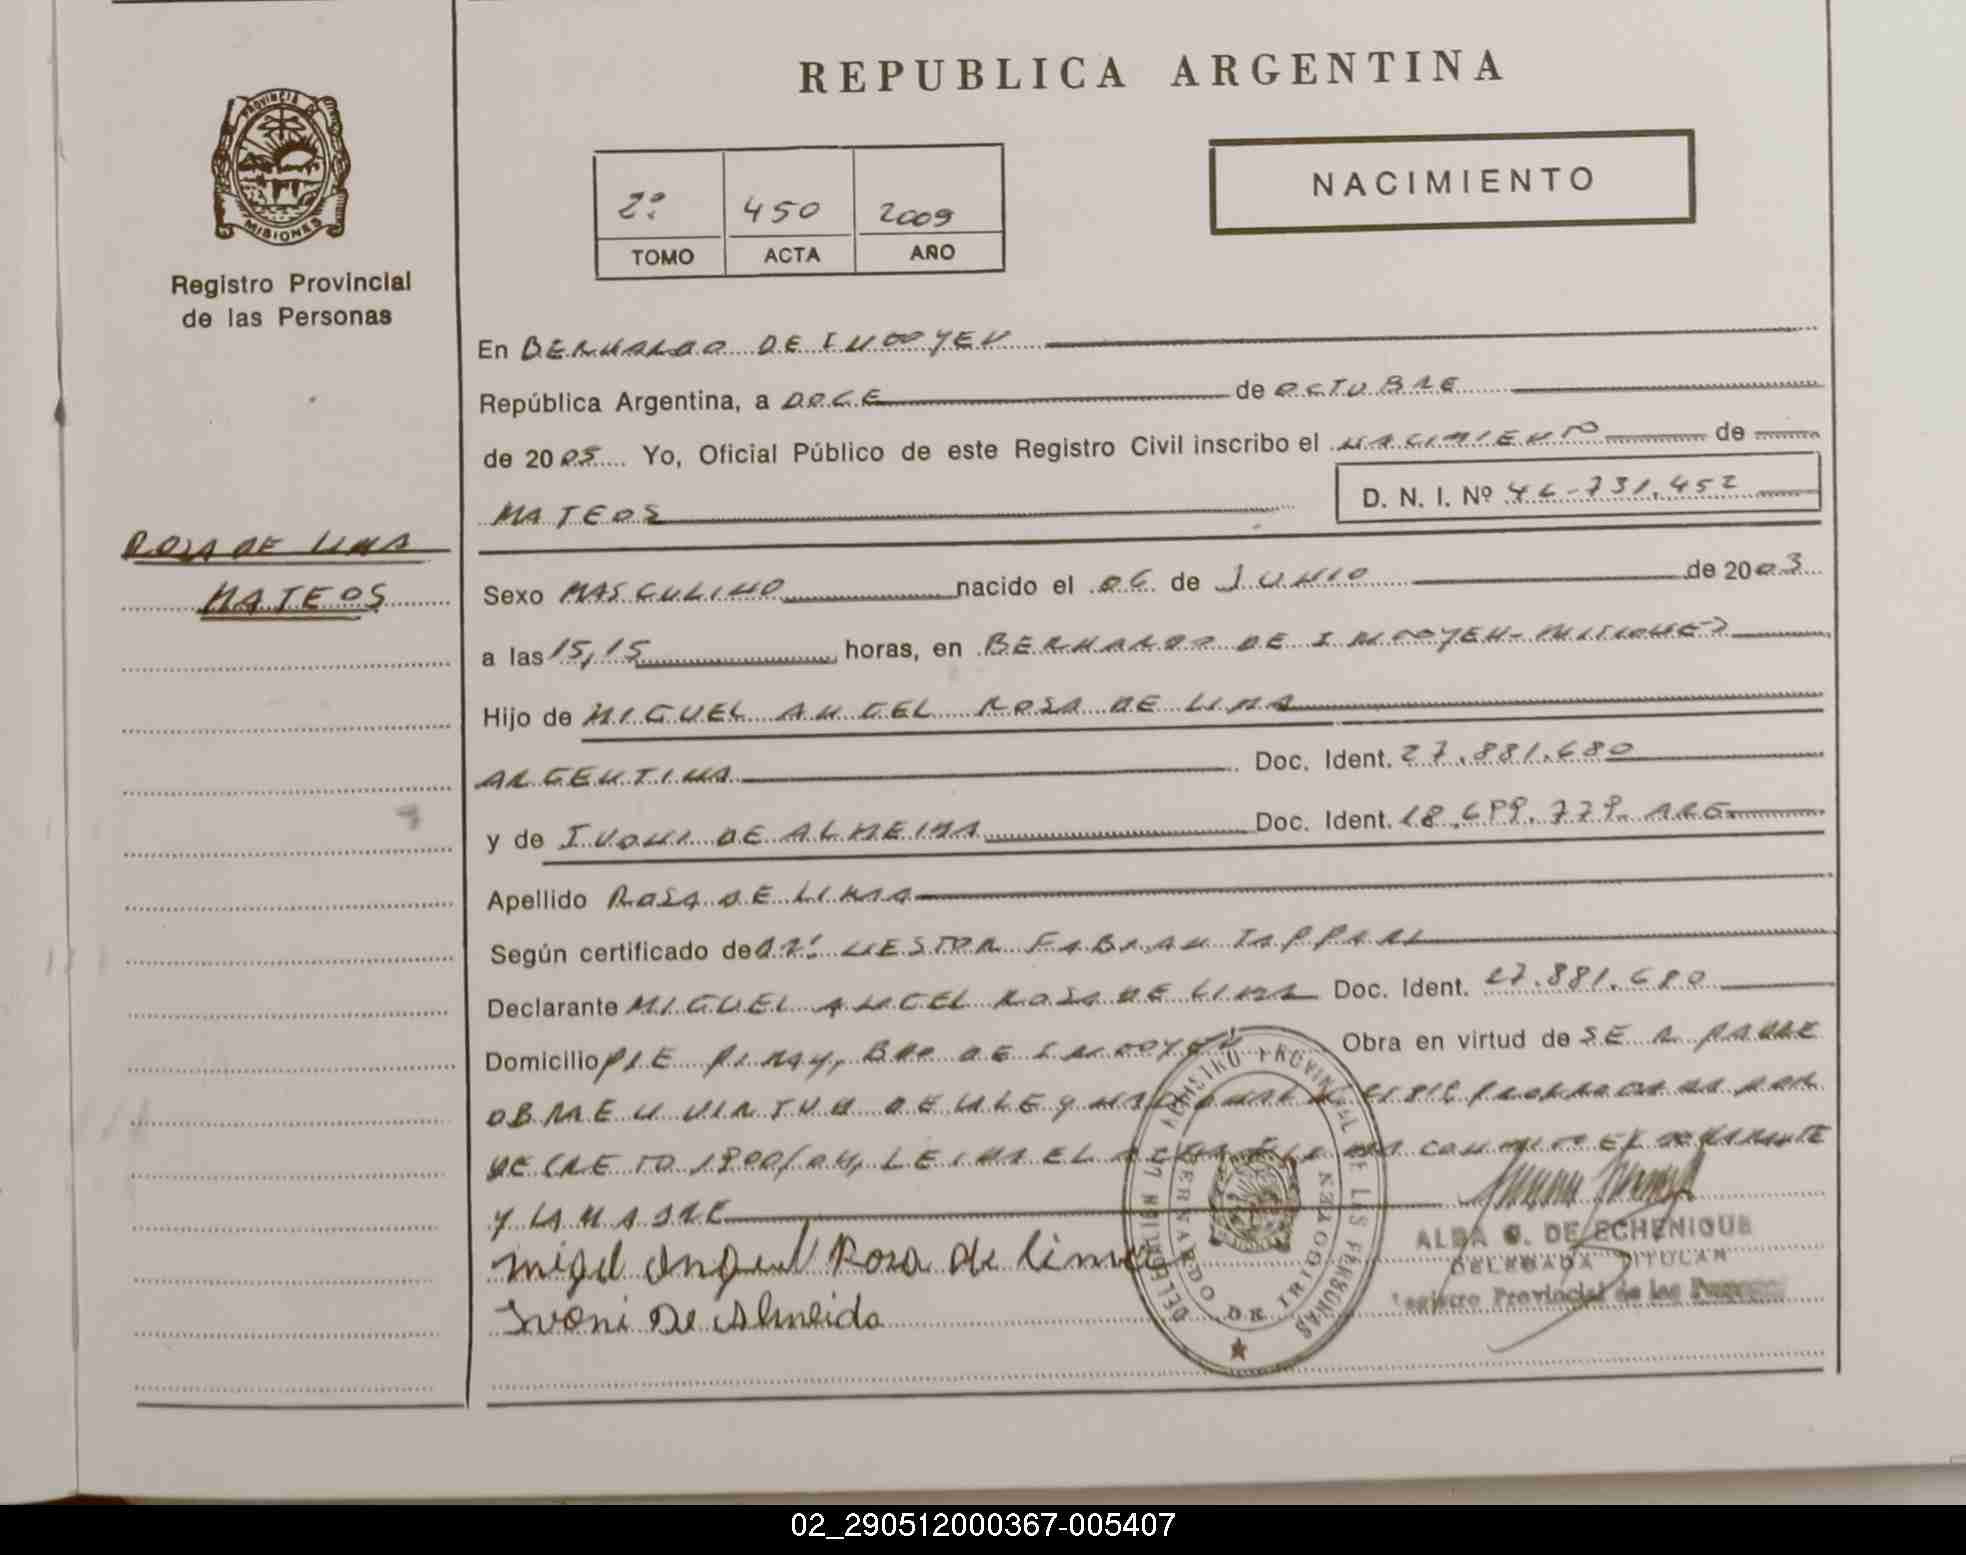 REPUBLICA ARGENTINA
PROVINCIA DE
MISIONES
Registro Provincial
de las Personas
NACIMIENTO
2º 450 2009
TOMO ACTA AÑO
En BERNARDO DE IRIGOYEN
República Argentina, a DOCE de OCTUBRE
de 2005 Yo, Oficial Público de este Registro Civil inscribo el NACIMIENTO de
MATEOS D. N. I. Nº 46-731.452
ROSA DE LIMA
MATEOS
Sexo MASCULINO nacido el 06 de JUNIO de 2003
a las 15,15 horas, en BERNARDO DE IRIGOYEN-MISIONES
Hijo de MIGUEL ANGEL ROSA DE LIMA
ARGENTINA Doc. Ident. 27.881.680
y de IVONI DE ALMEIDA Doc. Ident. 18.699.779. ARG
Apellido ROSA DE LIMA
Según certificado de DR: NESTOR FABIAN
Declarante MIGUEL ANGEL ROSA DE LIMA Doc. Ident. 27.881.680
Domicilio PIE PINAY, BDO DE IRIGOYEN Obra en virtud de SER PADRE
OBRA EN VIRTUD DE LA LEY NACIONAL PRORROGADA POR
DECRETO 1900/04, LEIDA EL ACTA CONMIGO EL DECLARANTE
Y LA MADRE
Migel Angel Rosa de Lima
Ivoni De Almeida
DELEGACION REGISTRO PROVINCIAL DE LAS PERSONAS
BERNARDO DE IRIGOYEN
ALBA G. DE ECHENIQUE
DELEGADA TITULAR
Registro Provincial de las Personas
02_290512000367-005407